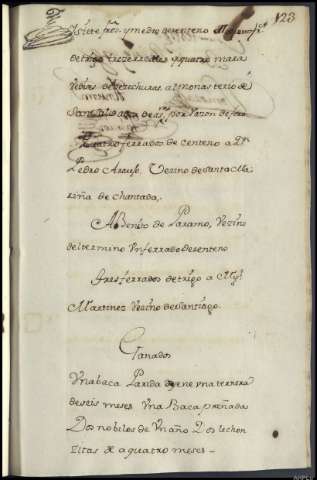 123
y siete frs. y medio de senteno
de trigo tres rreales y quatro mara
vedis de derechuras al monasterio de
San por rason de foro
quatro ferrados de centeno a Dn
Pedro Arauxo, Vezino de Santa Ma
riña de chantada,
A Benito de Paramo, Vezino
del termino Un ferrado de senteno
tres ferrados de trigo a Migl
Martinez Vezino de Santiago
Ganados
Una baca Parida tiene una ternera
de seis meses Una Baca preñada
Dos nobilos de Un año 2 os lechon
zitas de a quatro meses -